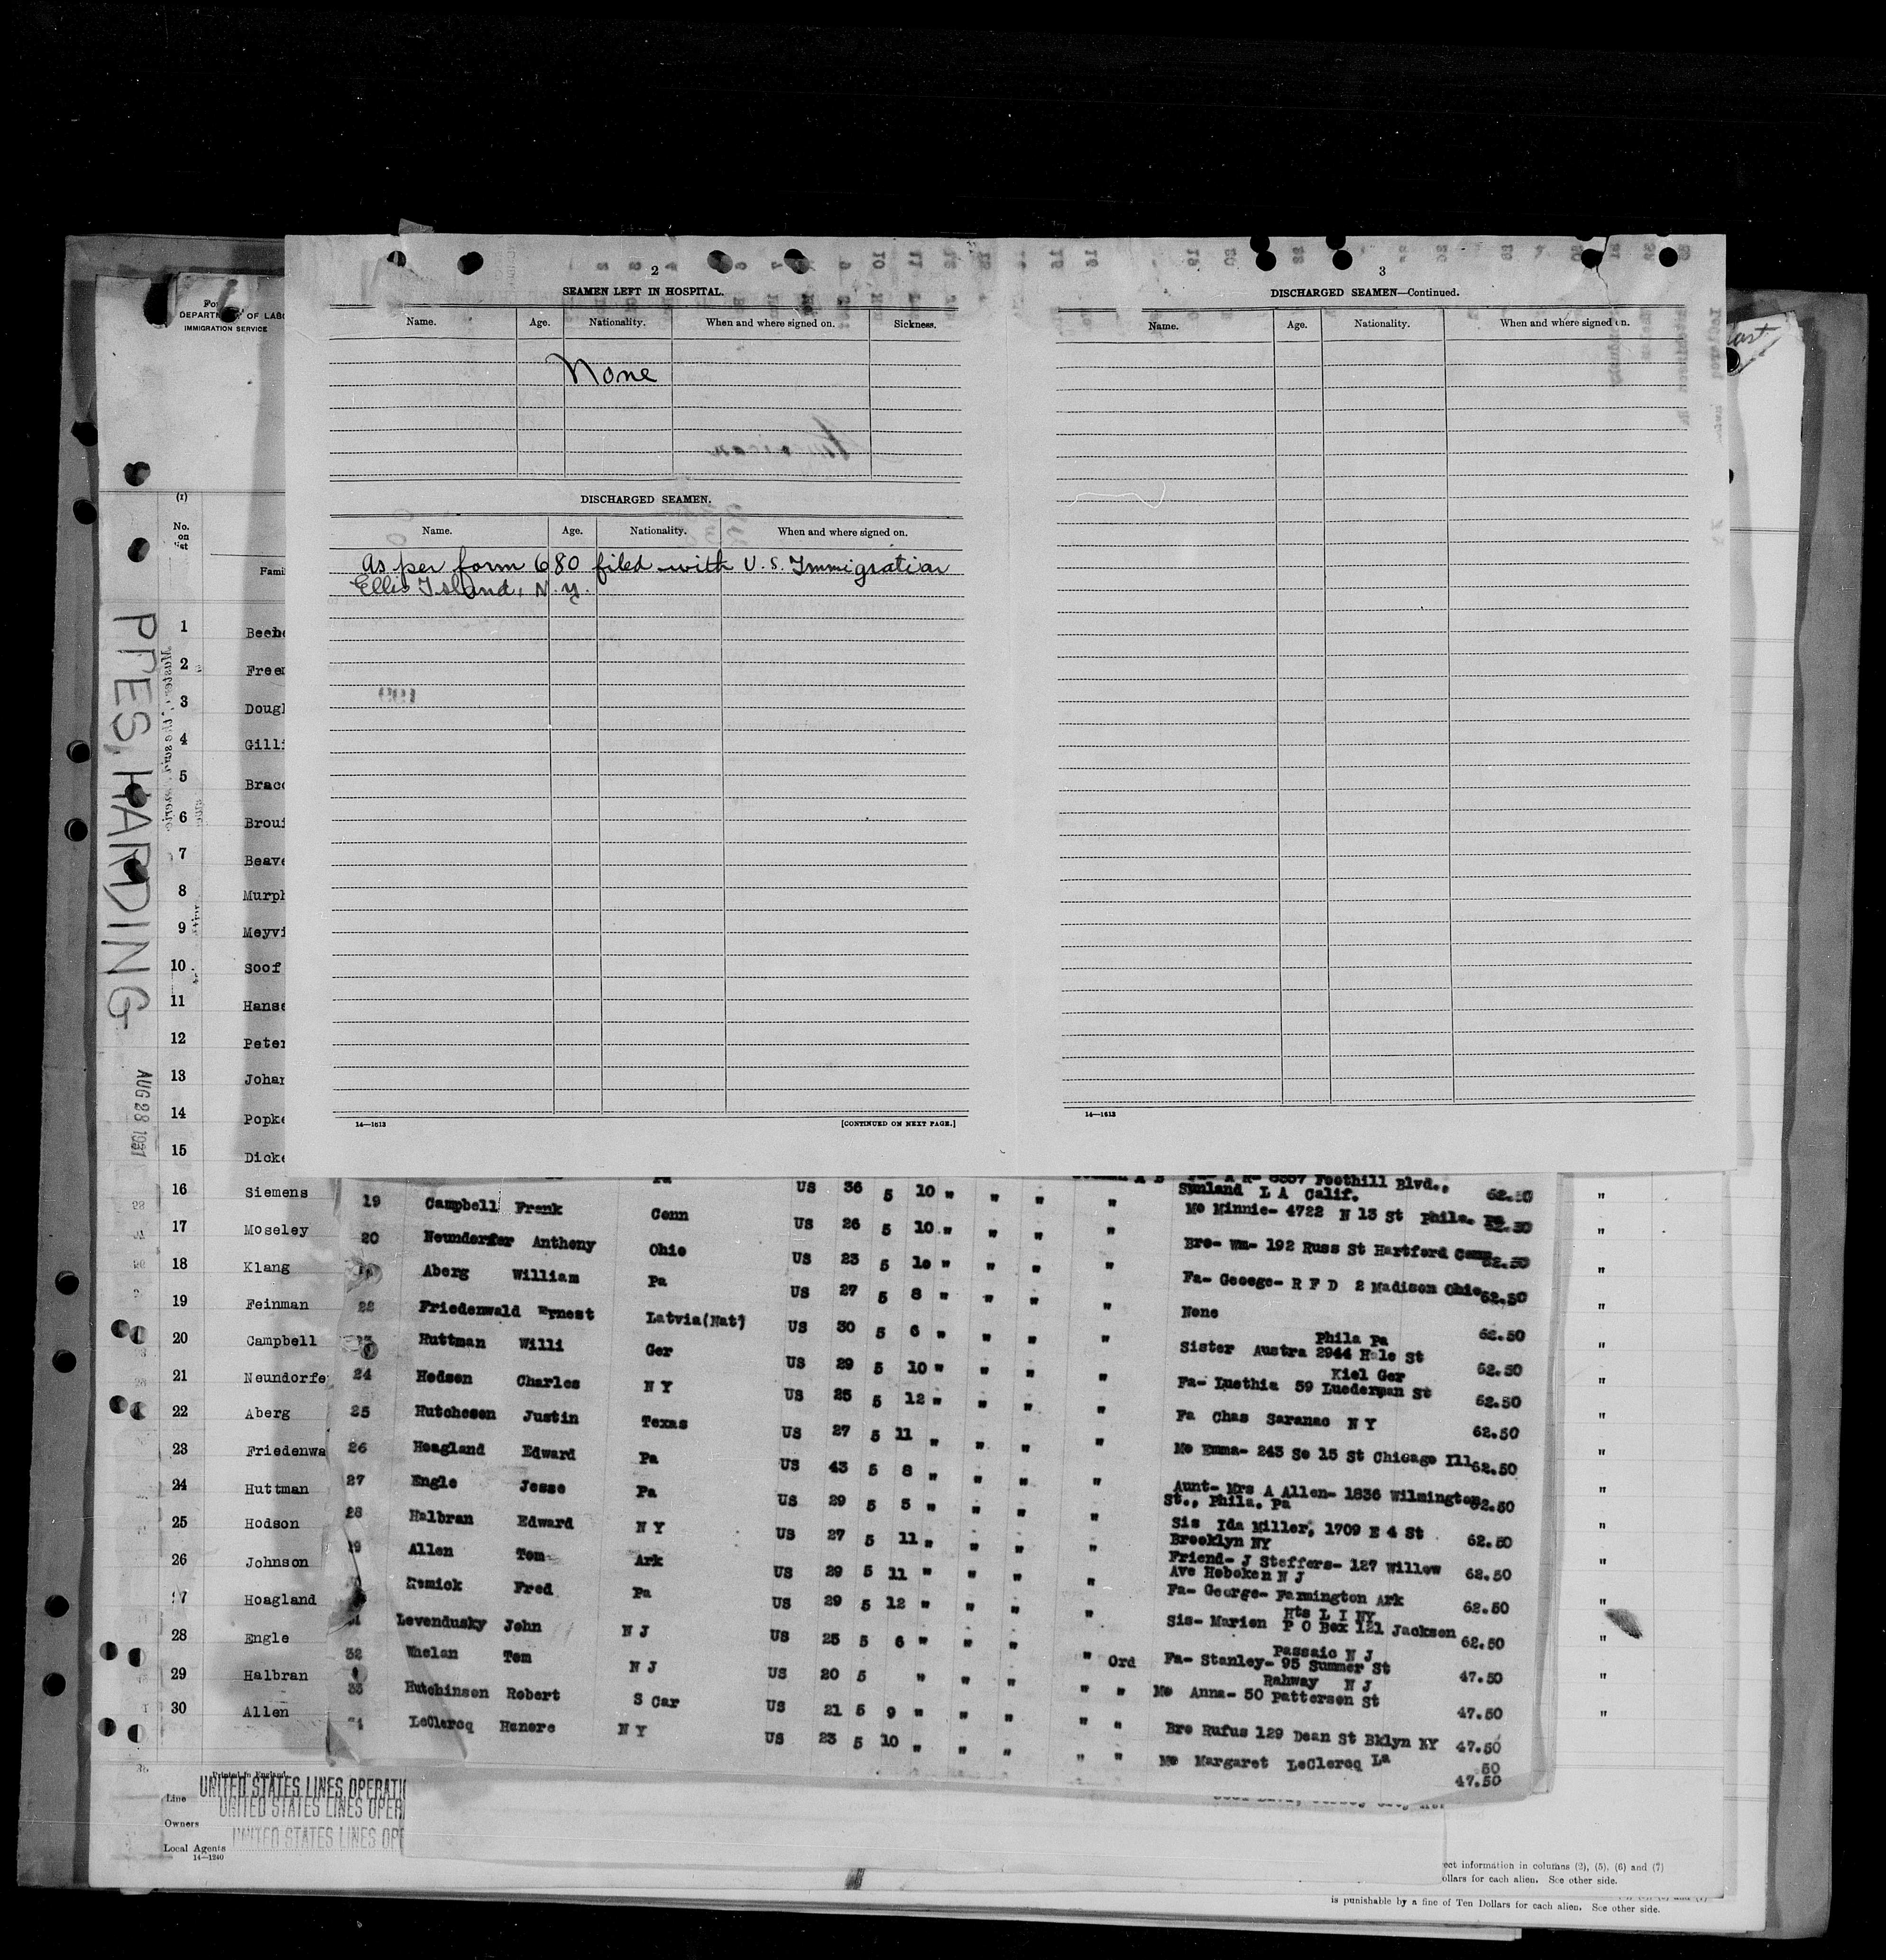 2
SEAMEN LEFT IN HOSPITAL.
Name. Age. Nationality. When and where signed on. Sickness.
None
DISCHARGED SEAMEN.
Name. Age. Nationality. When and where signed on.
As per form 680 filed with U.S. Immigration
Ellis Island, N.Y.
14—1613
[CONTINUED ON NEXT PAGE.]
3
DISCHARGED SEAMEN—Continued.
Name. Age. Nationality. When and where signed on.
14—1613
DEPARTMENT OF LABO
IMMIGRATION SERVICE
(1)
No. on list
Fami
PRES, HARDING
AUG 28 1931
1 Beeh
2 Free
3 Dougl
4 Gilli
5 Brac
6 Broui
7 Beave
8 Murph
9 Meyvi
10 Soof
11 Hans
12 Peter
13 Johan
14 Popke
15 Dicke
16 Siemens
17 Moseley
18 Klang
19 Feinman
20 Campbell
21 Neundorfe
22 Aberg
23 Friedenwa
24 Huttman
25 Hodson
26 Johnson
27 Hoagland
28 Engle
29 Halbran
30 Allen
Pa US 36 5 10 " " " " Foothill Blvd.,
Sunland L A Calif. 62.50
19 Campbell Frank Conn US 26 5 10 " " " " Mo Minnie- 4722 N 13 St Phila. Pa 62.50
20 Neunderfer Anthony Ohio US 23 5 10 " " " " Bro- Wm- 192 Russ St Hartford Conn 62.50
Aberg William Pa US 27 5 8 " " " " Fa- Geoege- R F D 2 Madison Ohio 62.50
22 Friedenwald Ernest Latvia(Nat) US 30 5 6 " " " " None 62.50
23 Huttman Willi Ger US 29 5 10 " " " " Phila Pa
Sister Austra 2944 Hale St 62.50
24 Hodson Charles N Y US 25 5 12 " " " " Kiel Ger
Fa- Luethia 59 Luederman St 62.50
25 Hutcheson Justin Texas US 27 5 11 " " " " Fa Chas Saranac N Y 62.50
26 Hoagland Edward Pa US 43 5 8 " " " " Mo Emma- 243 So 15 St Chicago Ill 62.50
27 Engle Jesse Pa US 29 5 5 " " " " Aunt- Mrs A Allen- 1836 Wilmington
St., Phila. Pa 62.50
28 Halbran Edward N Y US 27 5 11 " " " " Sis Ida Miller, 1709 E 4 St
Brooklyn NY 62.50
29 Allen Tom Ark US 29 5 11 " " " " Friend- J Steffers- 127 Willow
Ave Hoboken N J 62.50
Remick Fred Pa US 29 5 12 " " " " Fa- George- Farmington Ark 62.50
31 Levendusky John N J US 25 5 6 " " " " Ord Hts L I NY
Sis- Marion P O Box 121 Jackson 62.50
32 Whelan Tom N J US 20 5 " " " " " Passaic N J
Fa- Stanley- 95 Summer St 47.50
33 Hutchinson Robert S Car US 21 5 9 " " " " " Rahway N J
Mo Anna- 50 Patterson St 47.50
34 LeClercq Henere N Y US 23 5 10 " " " " " Bro Rufus 129 Dean St Bklyn NY 47.50
Mo Margaret LeClercq La
50
47.50
Printed in England
Line UNITED STATES LINES OPERATI
UNITED STATES LINES OPER
Owners
UNITED STATES LINES OPE
Local Agents
14—1240
ect information in columns (2), (5), (6) and (7)
ollars for each alien. See other side.
is punishable by a fine of Ten Dollars for each alien. See other side.